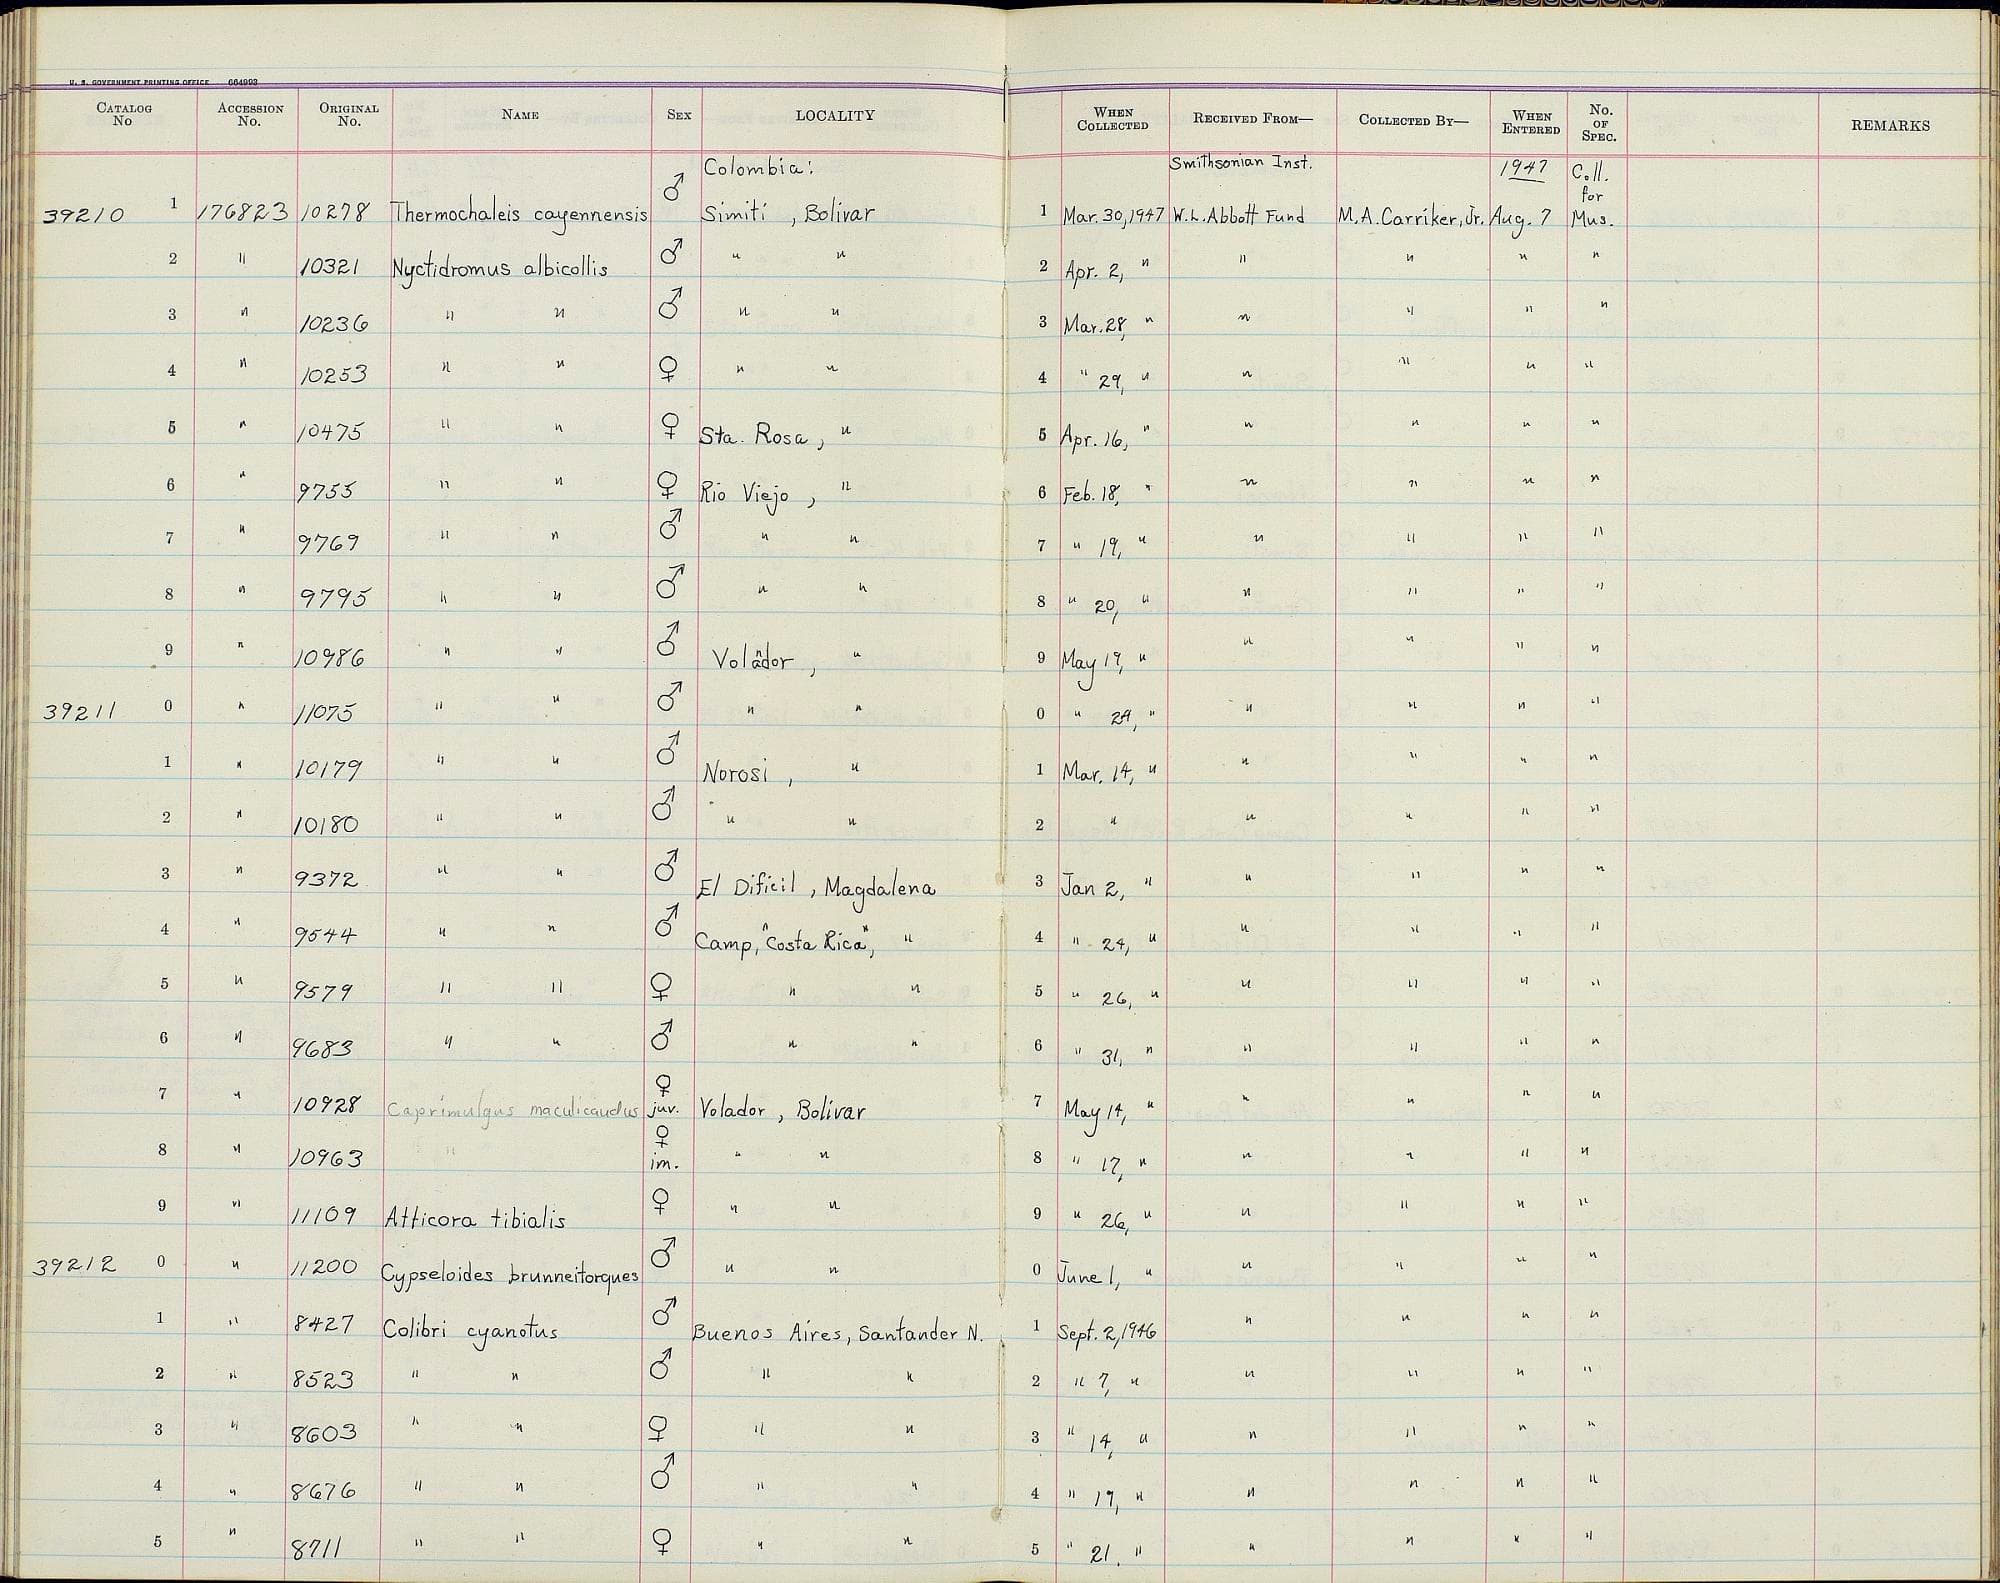 U. S. GOVERNMENT PRINTING OFFICE 664993
CATALOG No ACCESSION No. ORIGINAL No. NAME SEX LOCALITY WHEN COLLECTED RECEIVED FROM— COLLECTED BY— WHEN ENTERED No. OF SPEC. REMARKS
Colombia: Smithsonian Inst. 1947 Coll. for
39210 1 176823 10278 Thermochaleis cayennensis ♂ Simití, Bolívar 1 Mar. 30, 1947 W.L. Abbott Fund M.A. Carriker, Jr. Aug. 7 Mus.
2 " 10321 Nyctidromus albicollis ♂ " " 2 Apr. 2, " " " " "
3 " 10236 " " ♂ " " 3 Mar. 28, " " " " "
4 " 10253 " " ♀ " " 4 " 29, " " " " "
5 " 10475 " " ♀ Sta. Rosa, " 5 Apr. 16, " " " " "
6 " 9755 " " ♀ Rio Viejo, " 6 Feb. 18, " " " " "
7 " 9769 " " ♂ " " 7 " 19, " " " " "
8 " 9795 " " ♂ " " 8 " 20, " " " " "
9 " 10986 " " ♂ Volador, " 9 May 19, " " " " "
39211 0 " 11075 " " ♂ " " 0 " 24, " " " " "
1 " 10179 " " ♂ Norosi, " 1 Mar. 14, " " " " "
2 " 10180 " " ♂ " " 2 " " " " "
3 " 9372 " " ♂ El Dificil, Magdalena 3 Jan 2, " " " " "
4 " 9544 " " ♂ Camp, "Costa Rica", " 4 " 24, " " " " "
5 " 9579 " " ♀ " " 5 " 26, " " " " "
6 " 9683 " " ♂ " " 6 " 31, " " " " "
7 " 10928 Caprimulgus maculicaudus ♀ juv. Volador, Bolívar 7 May 14, " " " " "
8 " 10963 " ♀ im. " " 8 " 17, " " " " "
9 " 11109 Atticora tibialis ♀ " " 9 " 26, " " " " "
39212 0 " 11200 Cypseloides brunneitorques ♂ " " 0 June 1, " " " " "
1 " 8427 Colibri cyanotus ♂ Buenos Aires, Santander N. 1 Sept. 2, 1946 " " " "
2 " 8523 " " ♂ " " 2 " 7, " " " " "
3 " 8603 " " ♀ " " 3 " 14, " " " " "
4 " 8676 " " ♂ " " 4 " 19, " " " " "
5 " 8711 " " ♀ " " 5 " 21. " " " " "